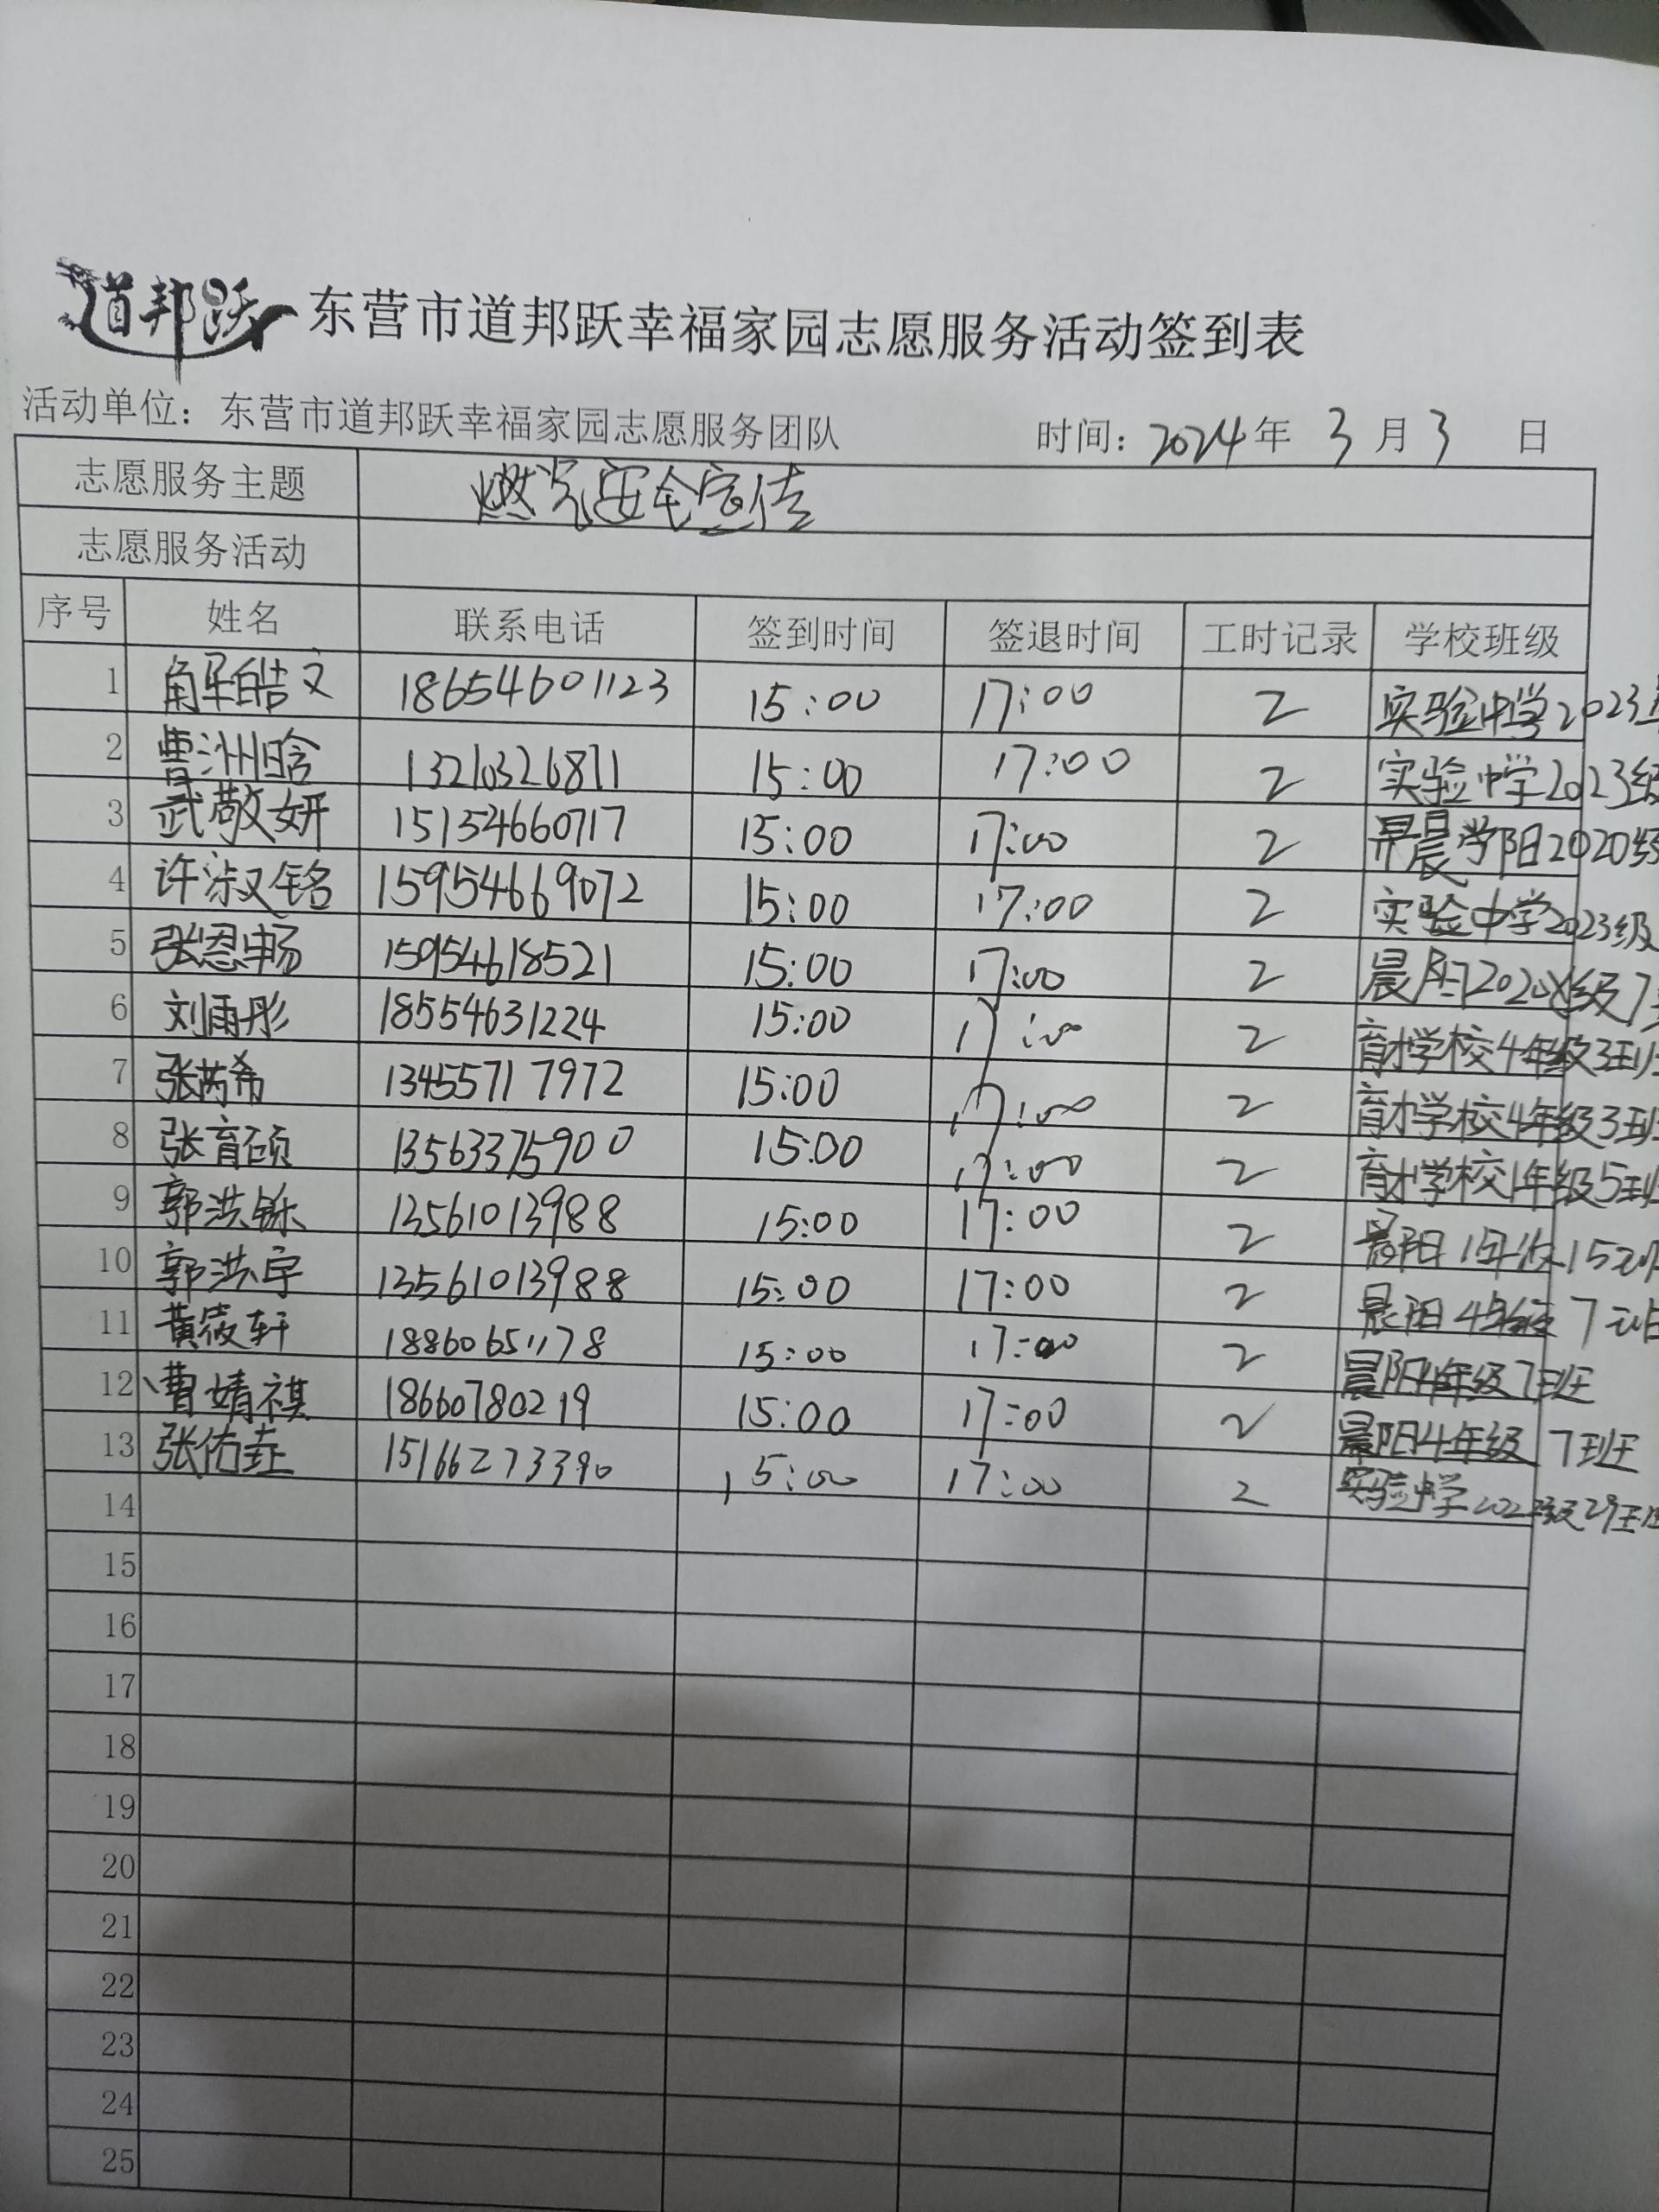 道邦跃 东营市道邦跃幸福家园志愿服务活动签到表
活动单位：东营市道邦跃幸福家园志愿服务团队 时间：2024年 3月3 日
志愿服务主题 燃气安全宣传
志愿服务活动
序号 姓名 联系电话 签到时间 签退时间 工时记录 学校班级
1 解皓文 18654601123 15:00 17:00 2 实验中学2023
2 曹洲晗 13210326811 15:00 17:00 2 实验中学2023级
3 武敬妍 15154660717 15:00 17:00 2 晨阳2020级
4 许淑铭 15954669072 15:00 17:00 2 实验中学2023级
5 张恩畅 15954618521 15:00 17:00 2 晨阳2020级7
6 刘雨彤 18554631224 15:00 17:00 2 育才学校4年级3班
7 张芮希 13455717972 15:00 17:00 2 育才学校4年级3班
8 张育硕 13563375900 15:00 17:00 2 育才学校1年级5班
9 郭洪铄 13561013988 15:00 17:00 2 晨阳1年级15班
10 郭洪宇 13561013988 15:00 17:00 2 晨阳4年级7班
11 黄筱轩 18860651178 15:00 17:00 2 晨阳4年级7班
12 曹婧祺 18660780219 15:00 17:00 2 晨阳4年级7班
13 张佑垚 15166273390 15:00 17:00 2 实验中学2022级29班
14
15
16
17
18
19
20
21
22
23
24
25